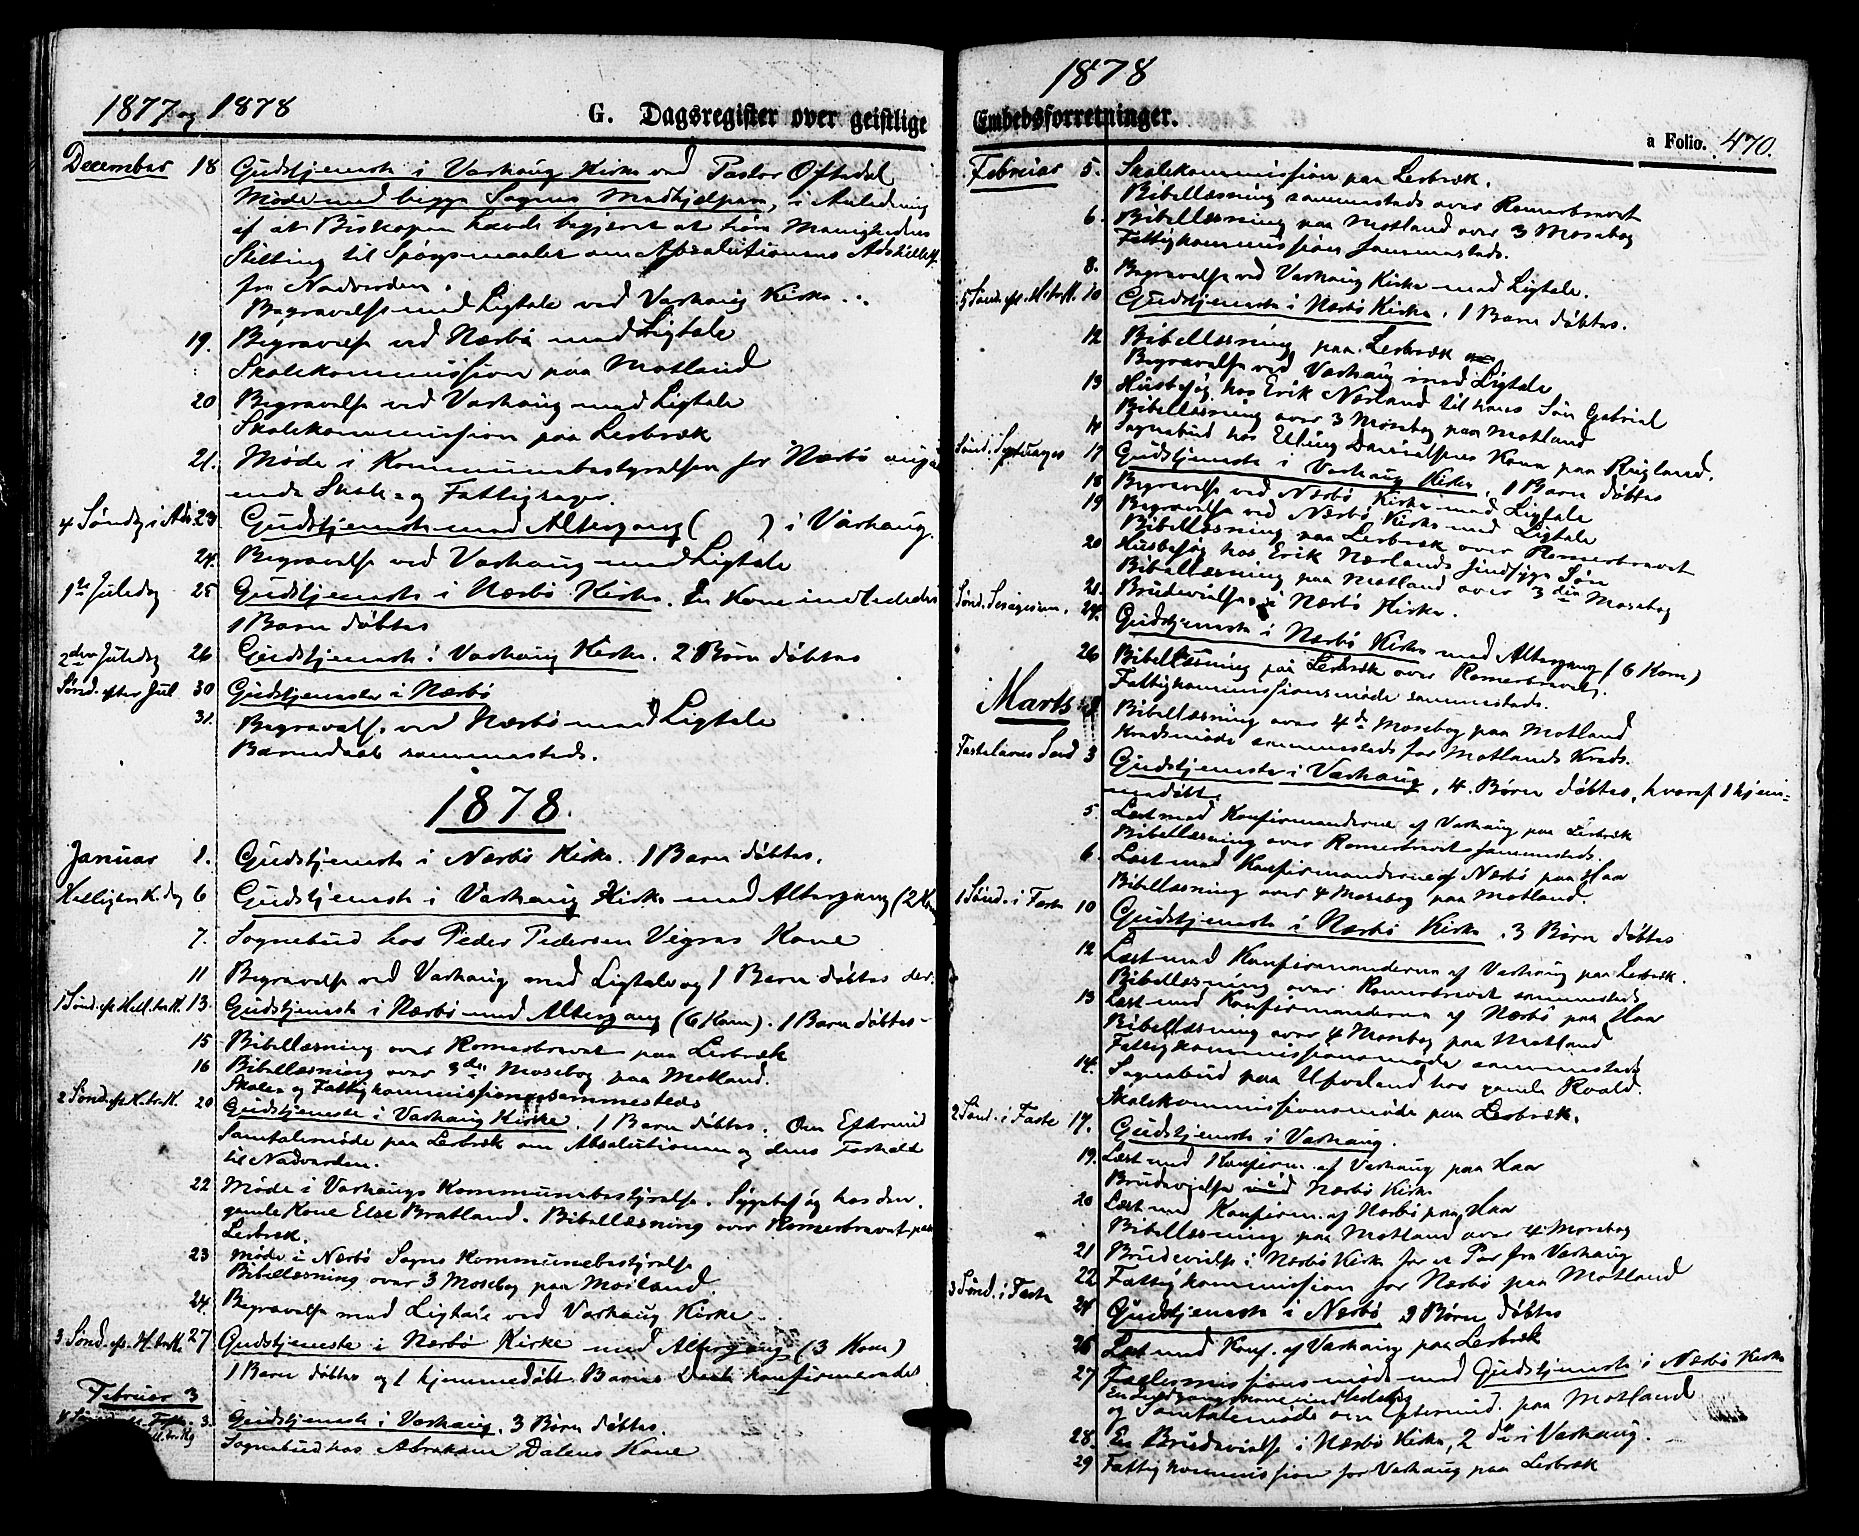 1877 og 1878
G. Dagsregister over geistlige
December 18 Gudstjeneste i Varhaug Kirke ved Pastor Oftedal
Møde med begge Sognes Medhjelpere, i Anledning
af at Biskopen havde begjeret at høre Menighedens
Stilling til Spørgsmaalet om Absolutionens Adskillelse
fra Nadverden.
Begravelse med Ligtale ved Varhaug Kirke.
19. Begravelse ved Nærbø med Ligtale
Skolekommission paa Motland
20 Begravelse ved Varhaug med Ligtale
Skolekommission paa Lerbræk
21. Møde i Kommunebestyrelsen for Nærbø angaa
ende Skole- og Fattigsager.
4 Søndag i Adv. 23 Gudstjeneste med Altergang ( ) i Varhaug.
24. Begravelse ved Varhaug med Ligtale
1ste Juledag 25 Gudstjeneste i Nærbø Kirke. En Kone indlededes
1 Barn døbtes
2den Juledag 26 Gudstjeneste i Varhaug Kirke. 2 Børn døbtes
Sønd. efter Jul 30 Gudstjeneste i Nærbø
31. Begravelse ved Nærbø med Ligtale
Barnedaab sammesteds.
1878.
Januar 1. Gudstjeneste i Nærbø Kirke. 1 Barn døbtes.
Helligen K. dag 6 Gudstjeneste i Varhaug Kirke med Altergang (2 Kom
7. Sognebud hos Peder Pedersen Vigres Kone
11 Begravelse ved Varhaug med Ligtale og 1 Barn døbtes der.
1 Sønd. eft Hell. tr. K. 13. Gudstjeneste i Nærbø med Altergang (6 Kom). 1 Barn døbtes-
15 Bibellæsning over Romerbrevet paa Lerbræk
16 Bibellæsning over 3die Mosebog paa Motland.
Skole- og Fattigkommission sammesteds
2 Sønd. eft H. tr. K. 20 Gudstjeneste i Varhaug Kirke. 1 Barn døbtes. Om Eftermid
Samtalemøde paa Lerbræk om Absolutionen og dens Forhold
til Nadverden.
22 Møde i Varhaugs Kommunebestyrelse. Sygebesøg hos den
gamle Kone Else Bratland. Bibellæsning over Romerbrevet paa
Lerbræk.
23 Møde i Nærbø Sogns Kommunebestyrelse
Bibellæsning over 3 Mosebog paa Motland.
24. Begravelse med Ligtale ved Varhaug Kirke
3 Sønd. eft. H. tr. K. 27 Gudstjeneste i Nærbø Kirke med Altergang (3 Kom)
1 Barn døbtes og 1 hjemmedøbt Barns Daab konfirmeredes
Februar 3
3. Gudstjeneste i Varhaug. 3 Børn døbtes.
Sognebud hos Abraham Dalens Kone
1878
Embedsforretninger.
a Folio. 470.
Februar 5. Skolekommission paa Lerbræk.
Bibellæsning sammesteds over Romerbrevet
6. Bibellæsning paa Motland over 3 Mosebog
Fattigkommission sammesteds.
8. Begravelse ved Varhaug Kirke med Ligtale.
5 Sønd. eft. H. tr. K. 10 Gudstjeneste i Nærbø Kirke. 1 Barn døbtes.
12 Bibellæsning paa Lerbræk
Begravelse ved Varhaug med Ligtale
13 Husbesøg hos Erik Nærland til hans Søn Gabriel
Bibellæsning over 3 Mosebog paa Motland
14 Sognebud hos Elling Danielsens Kone paa Rugland.
Sønd. Septuages 17 Gudstjeneste i Varhaug Kirke. 1 Barn døbtes
18 Begravelse ved Nærbø Kirke med Ligtale
19 Begravelse ved Nærbø Kirke med Ligtale
Bibellæsning paa Lerbræk over Romerbrevet
20 Husbesøg hos Erik Nærlands sindsyge Søn
Bibellæsning paa Motland over 3die Mosebog
21. Brudevielse i Nærbø Kirke.
Sønd. Sexagesim. 24. Gudstjeneste i Nærbø Kirke med Altergang (6 Kom)
26 Bibellæsning paa Lerbræk over Romerbrevet.
Fattigkommissionsmøde sammesteds.
Marts Bibellæsning over 4de Mosebog paa Motland
Kredsmøde sammesteds for Motlands Kreds.
Fastelavns Sønd 3 Gudstjeneste i Varhaug. 4 Børn døbtes, hvoraf 1 hjem-
medøbt.
5. Læst med Konfirmanderne af Varhaug paa Lerbræk
Bibellæsning over Romerbrevet sammesteds.
6. Læst med Konfirmanderne af Nærbø paa Haar
Bibellæsning over 4 Mosebog paa Motland.
1 Sønd. i Faste 10 Gudstjeneste i Nærbø Kirke. 3 Børn døbtes
12 Læst med Konfirmanderne af Varhaug paa Lerbræk.
Bibellæsning over Romerbrevet sammesteds
13 Læst med Konfirmanderne af Nærbø paa Haar
Bibellæsning over 4 Mosebog paa Motland
Fattigkommissionsmøde sammesteds
14. Sognebud paa Upeland hos gamle Roald.
Skolekommissionsmøde paa Lerbræk.
2 Sønd. i Faste 17. Gudstjeneste i Varhaug.
19. Læst med Konfirm. af Varhaug paa Haar
Brudevielse ved Nærbø Kirke
20 Læst med Konfirm. af Nærbø paa Haar
Bibellæsning paa Motland over 4 Mosebog
21 Brudevielse i Nærbø Kirke for et Par fra Varhaug
22 Fattigkommission for Nærbø paa Motland
3 Sønd. i Faste 24 Gudstjeneste i Nærbø 2 Børn døbtes
26 Læst med Konf. af Varhaug paa Lerbræk
27 Fællesmissionsmøde med Gudstjeneste i Nærbø Kirke
og Samtalemøde om Eftermid. paa Motland
28. En Brudevielse i Nærbø Kirke, 2 do i Varhaug.
29 Fattigkommission for Varhaug paa Lerbræk